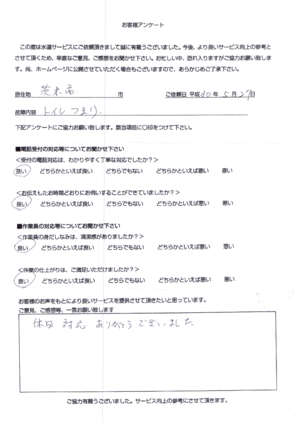 お客様アンケート
この度は水道サービスにご依頼頂きまして誠に有難うございました。今後、より良いサービス向上の参考と
させて頂くため、率直なご意見、ご感想をお聞かせ下さい。お忙しい中、恐れ入りますがご協力お願い致しま
す。尚、ホームページに公開させていただく場合もございますので、あらかじめご了承下さい。
居住地 茨木市 市 ご依頼日 平成30年 5月27日
故障内容 トイレつまり.
下記アンケートにご協力お願い致します。該当項目に〇印をつけて下さい。
■電話受付の対応等についてお聞かせ下さい
<受付の電話対応は、わかりやすく丁寧な対応でしたか?>
良い どちらかといえば良い どちらでもない どちらかといえば悪い 悪い
<お伝えしたお時間どおりにお伺いすることができていましたか?>
良い どちらかといえば良い どちらでもない どちらかといえば悪い 悪い
■作業員の対応等についてお聞かせ下さい
<作業員の身だしなみは、清潔感がありましたか?>
良い どちらかといえば良い どちらでもない どちらかといえば悪い 悪い
<作業の仕上がりは、ご満足いただけましたか?>
良い どちらかといえば良い どちらでもない どちらかといえば悪い 悪い
お客様のお声をもとにより良いサービスを提供させて頂きたいと思っています。
ご意見、ご感想等、一言お願い致します
休日対応ありがとうございました
ご協力有難うございました。サービス向上の参考にさせて頂きます。